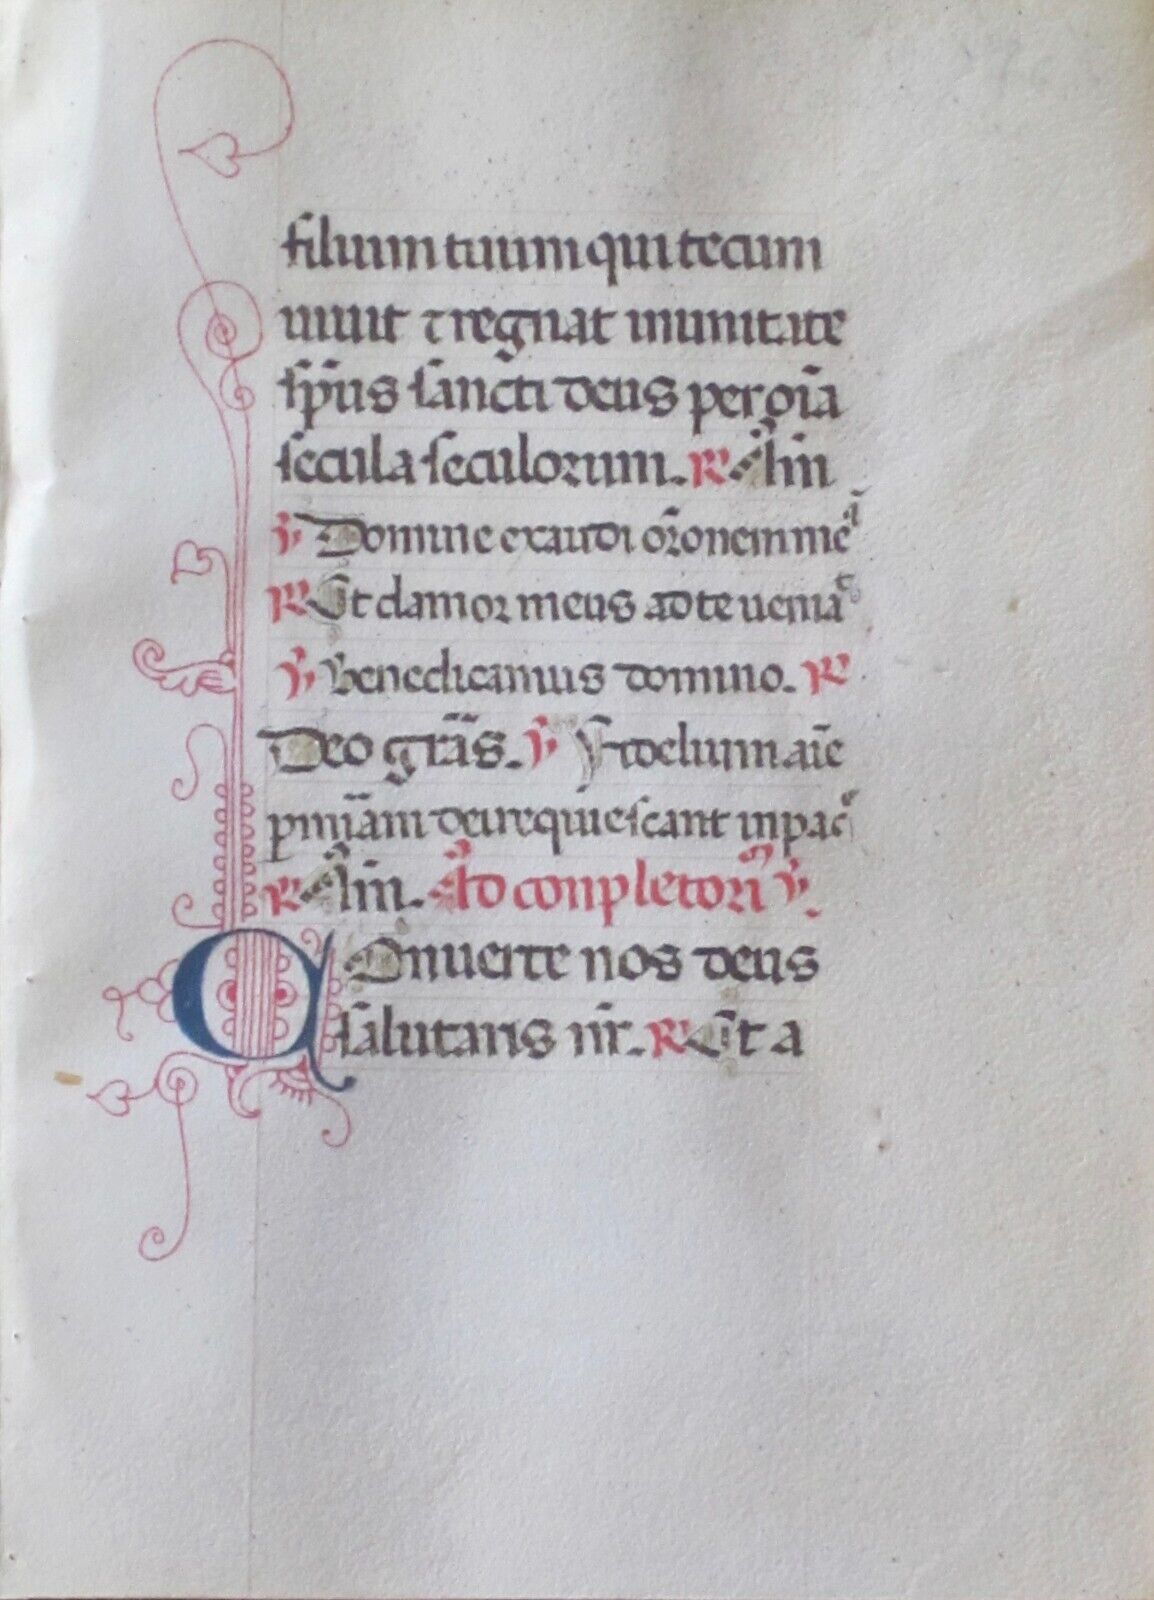 filium tuum qui tecum
uiuit ⁊ regnat in unitate
sp̄us sancti deus per oīa
secula seculorum. ℟ Am̄
℣ Domine exaudi or̄onem meā
℟ Et clamor meus ad te ueniat
℣ Benedicamus domino. ℟
Deo grās. ℣ Fidelium aīe
p̱ miīam dei requiescant in pace
℟ Am̄. Ad conpletoriū ℣.
COnuerte nos deus
salutaris nr̄. ℟ Et a